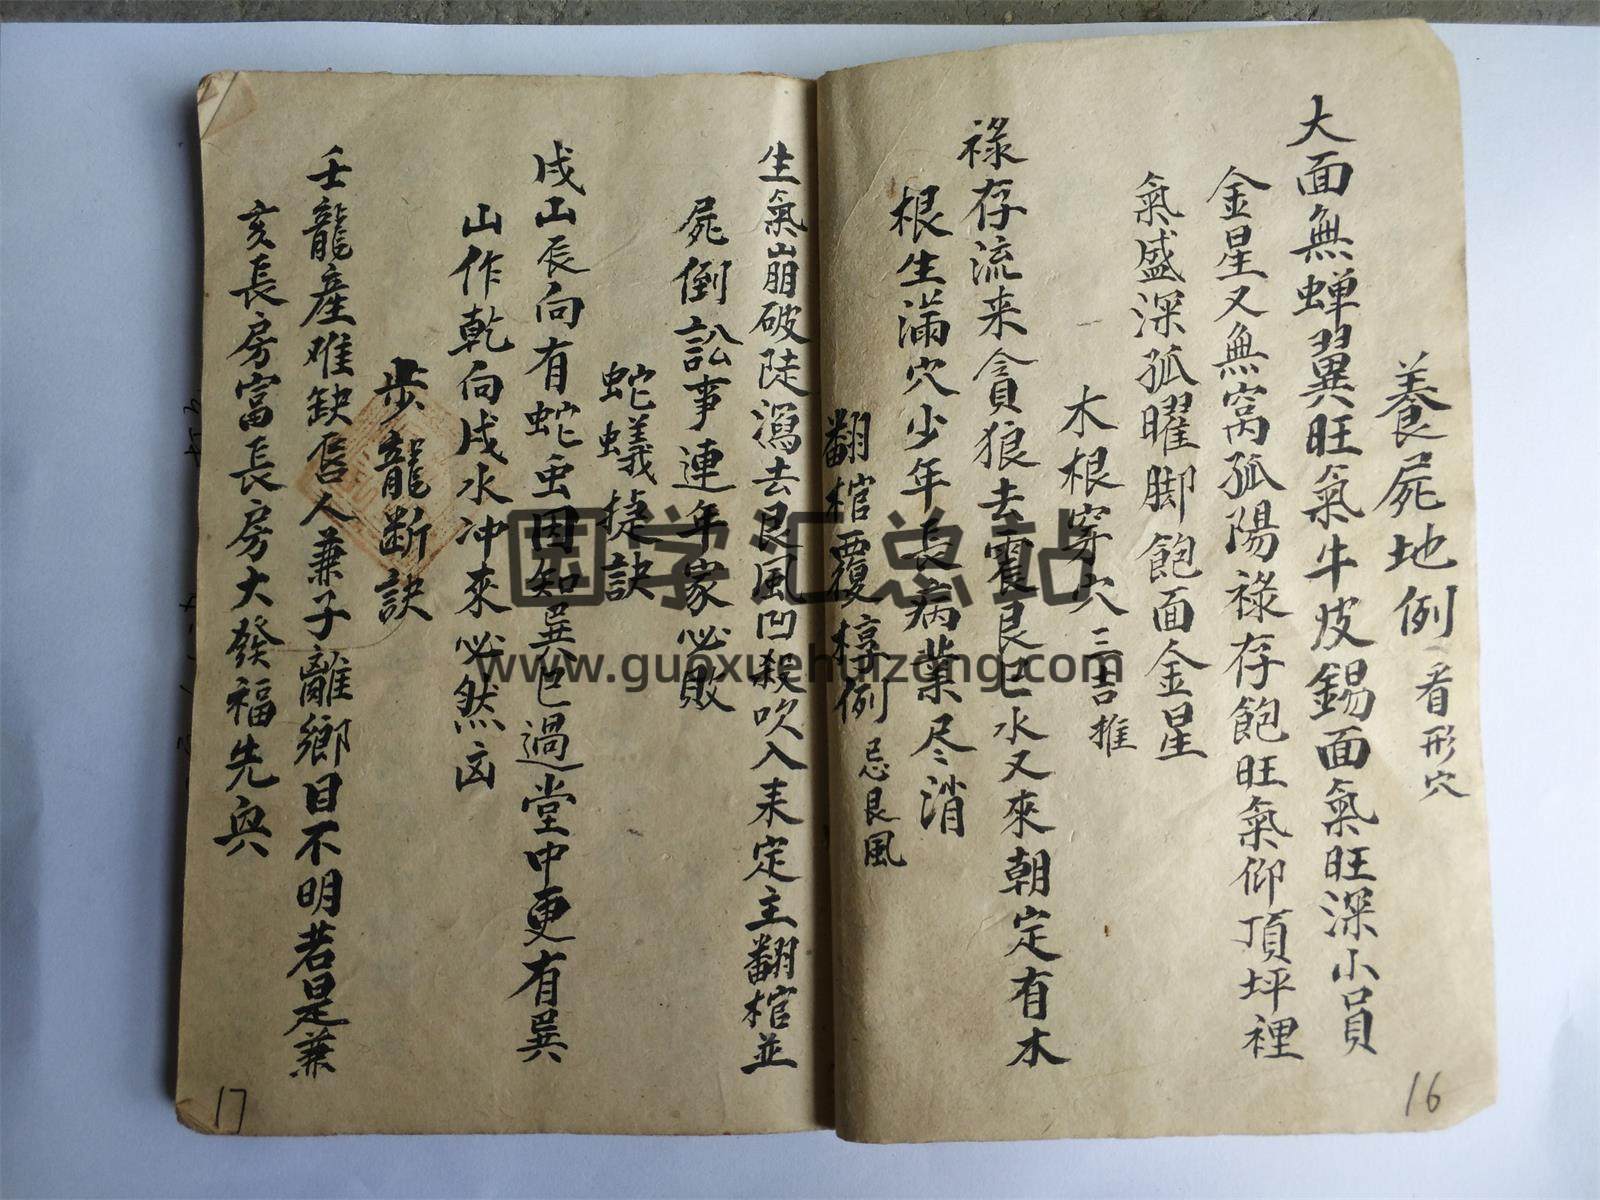 養屍地例 看形穴
大面無蝉翼旺氣牛皮錫面氣旺深小員
金星又無窝孤陽祿存飽旺氣仰頂坪裡
氣盛深孤曜脚飽面金星
木根穿穴 三吉推
祿存流来貪狼去震艮巳水又來朝定有木
根生满穴少年長病業尽消
翻棺覆椁例 忌艮風
16
生氣崩破陡瀉去艮風凹殺吹入来定主翻棺並
屍倒訟事連年家必敗
蛇蟻捷訣
戌山辰向有蛇虫因知巽巳過堂中更有巽
山作乾向戌水冲來必然凶
步龍断訣
壬龍產难缺唇人兼子離鄉目不明若是兼
亥長房富長房大發福先興
17
国学汇总站
www.guoxuehuizong.com